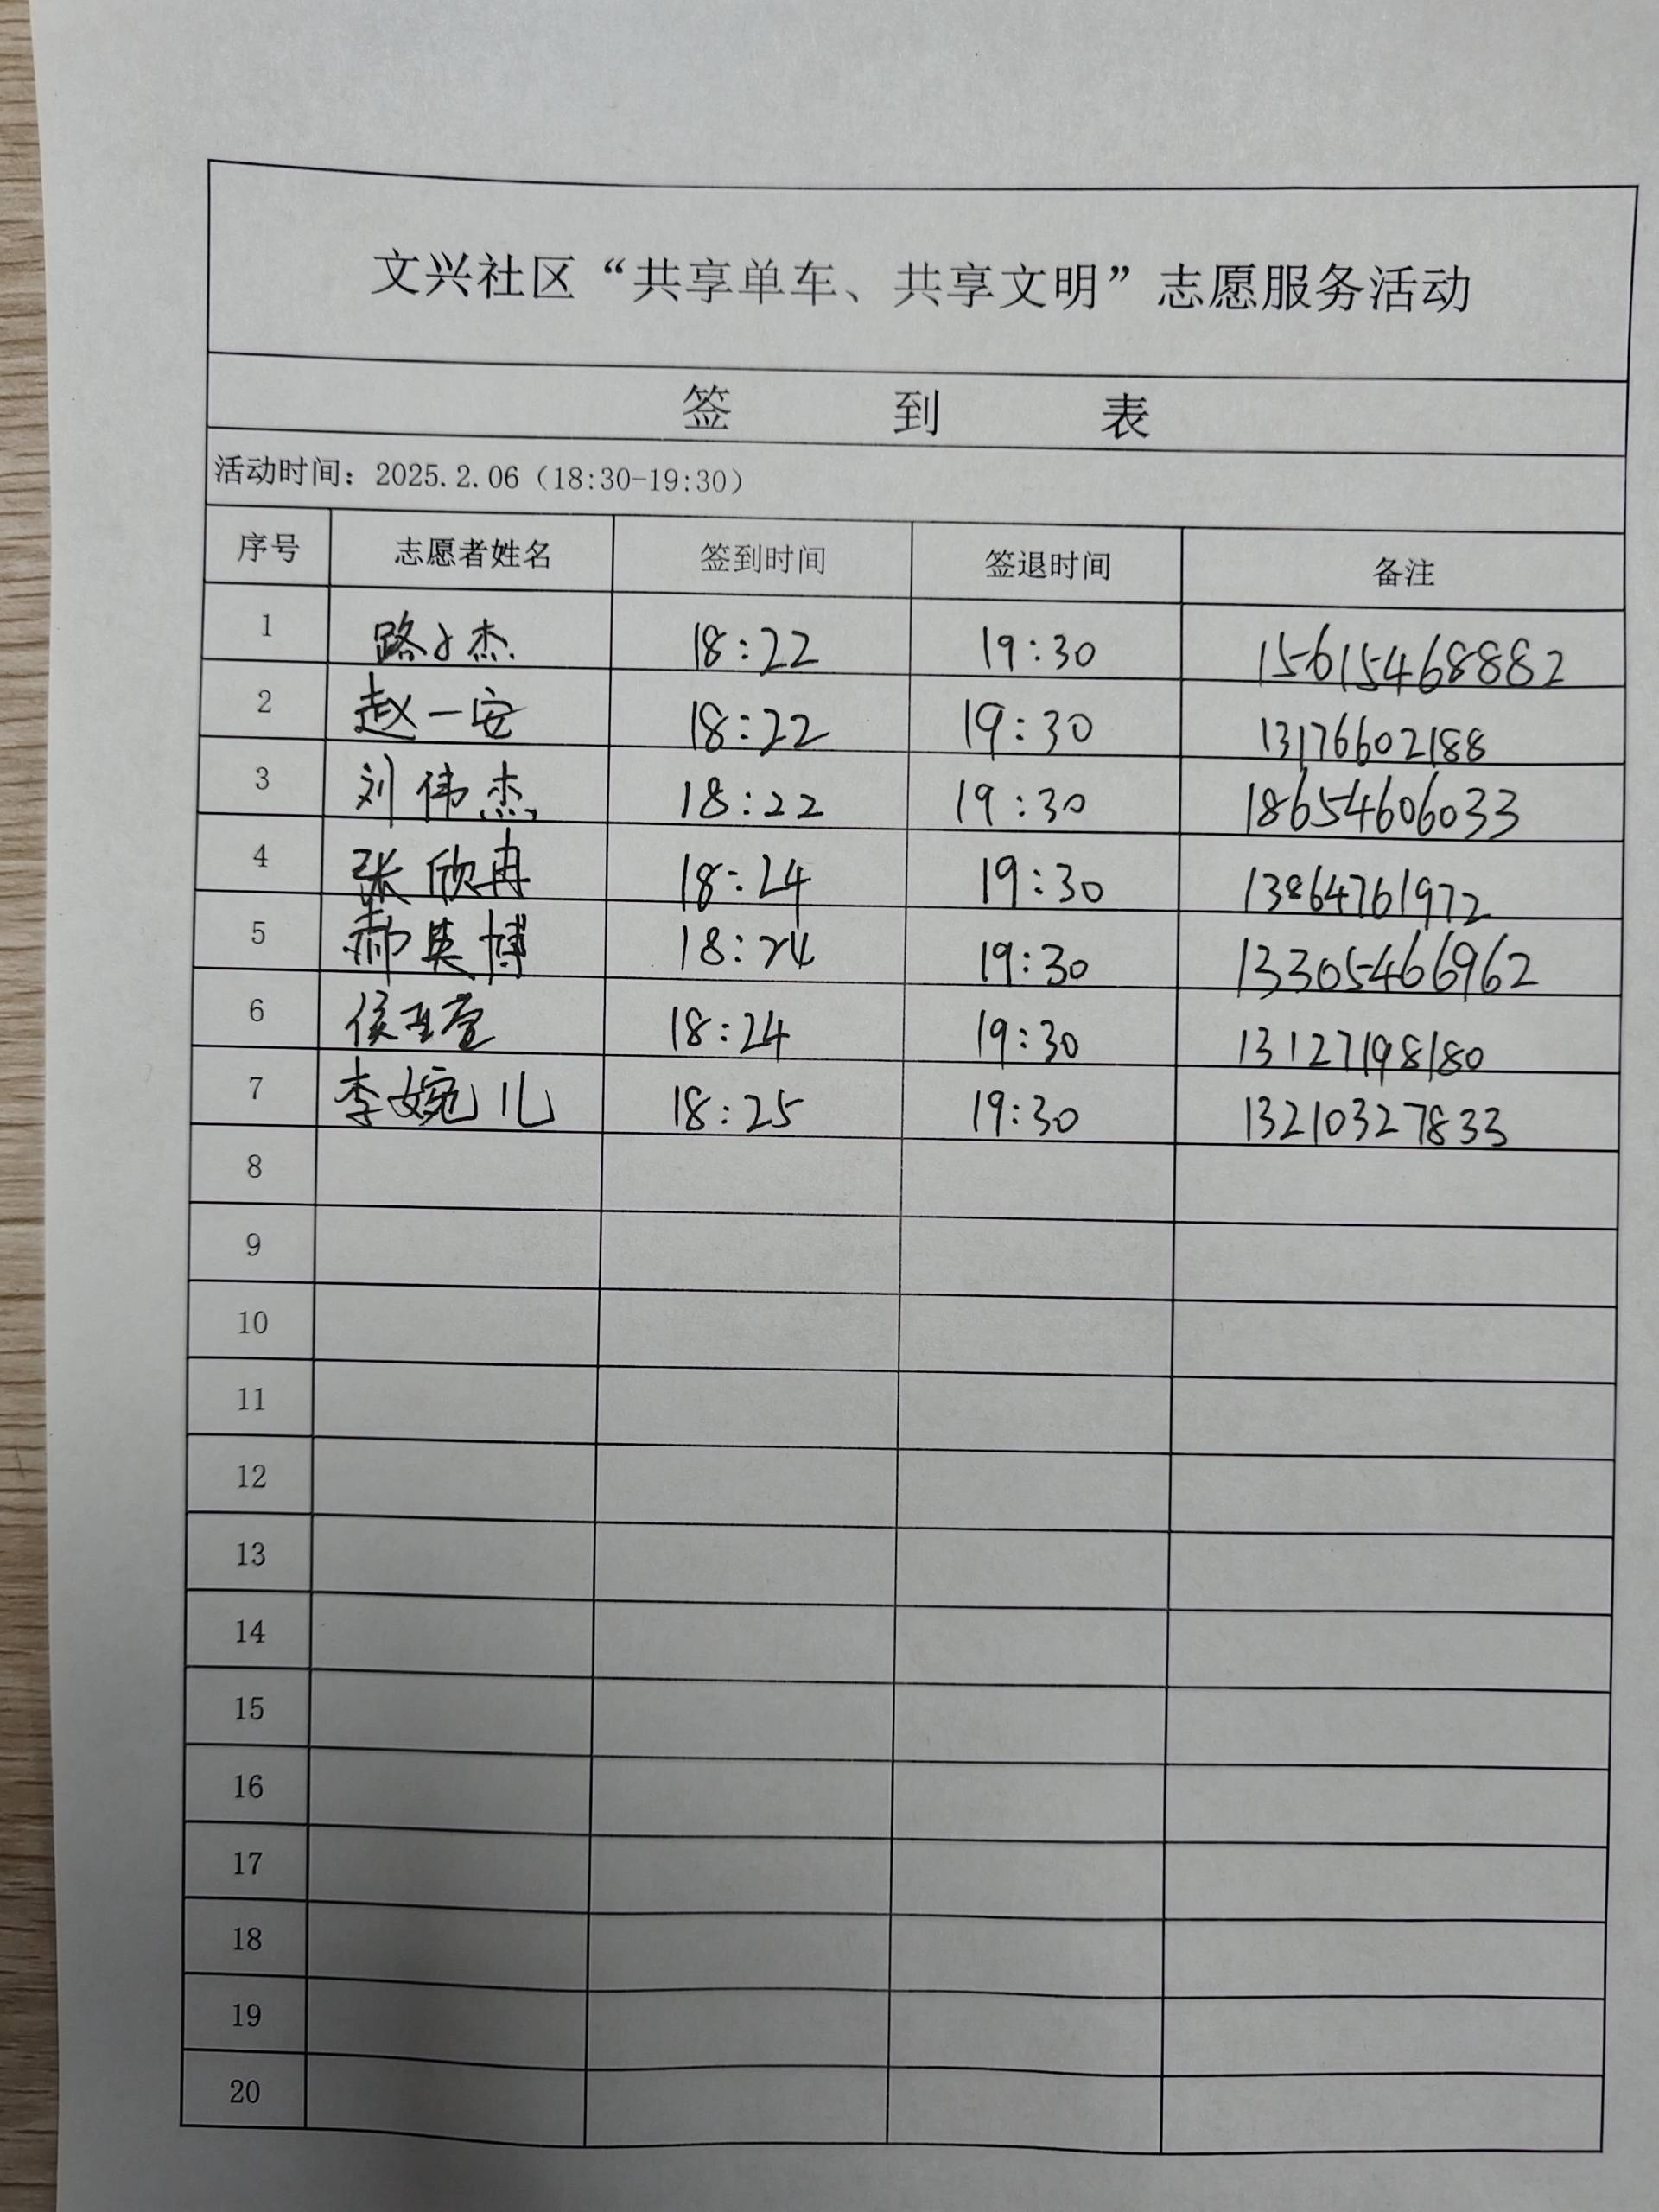 文兴社区“共享单车、共享文明”志愿服务活动
签 到 表
活动时间：2025.2.06（18:30-19:30）
序号 志愿者姓名 签到时间 签退时间 备注
1 路子杰 18:22 19:30 15615468882
2 赵一安 18:22 19:30 13176602188
3 刘伟杰 18:22 19:30 18654606033
4 张欣冉 18:24 19:30 13864761972
5 郝英博 18:24 19:30 13305466962
6 侯 18:24 19:30 13127198180
7 李婉儿 18:25 19:30 13210327833
8
9
10
11
12
13
14
15
16
17
18
19
20